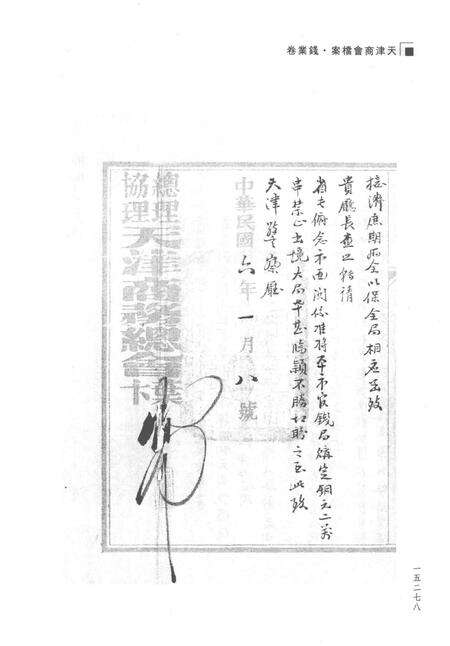 卷業錢·案檔會商津天
接濟庶期兩全以保全局相應函致
貴廳長查照轉請
省長俯念市面關係准將本市官錢局購定銅元二萬
串禁止出境大局幸甚臨穎不勝切盼之至此致
天津警察廳
中華民國六年一月八號
總理
協理
天津商務總會
一五二七八